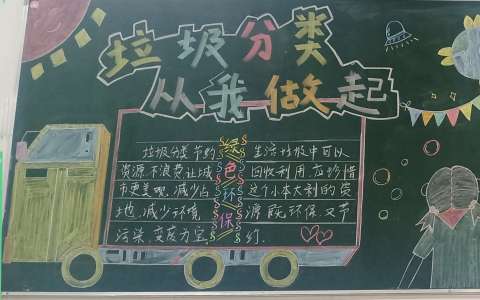 垃圾分类
从我做起
垃圾分类节约
资源不浪费让城
市更美观,减少占
地,减少环境
污染,变废为宝,
绿色环保
生活垃圾中可以
回收利用,在珍惜
这个小本大利的资
源既环保又节
约.